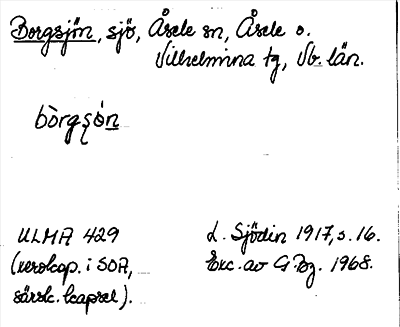 Borgsjön, sjö, Åsele sn, Åsele o.
Vilhelmina tg, Vb. län.
bòrgʂón
ULMA 429
(xerokop. i SOA,
särsk. kapsel).
L. Sjödin 1917, s. 16.
Exc. av G. Bg. 1968.